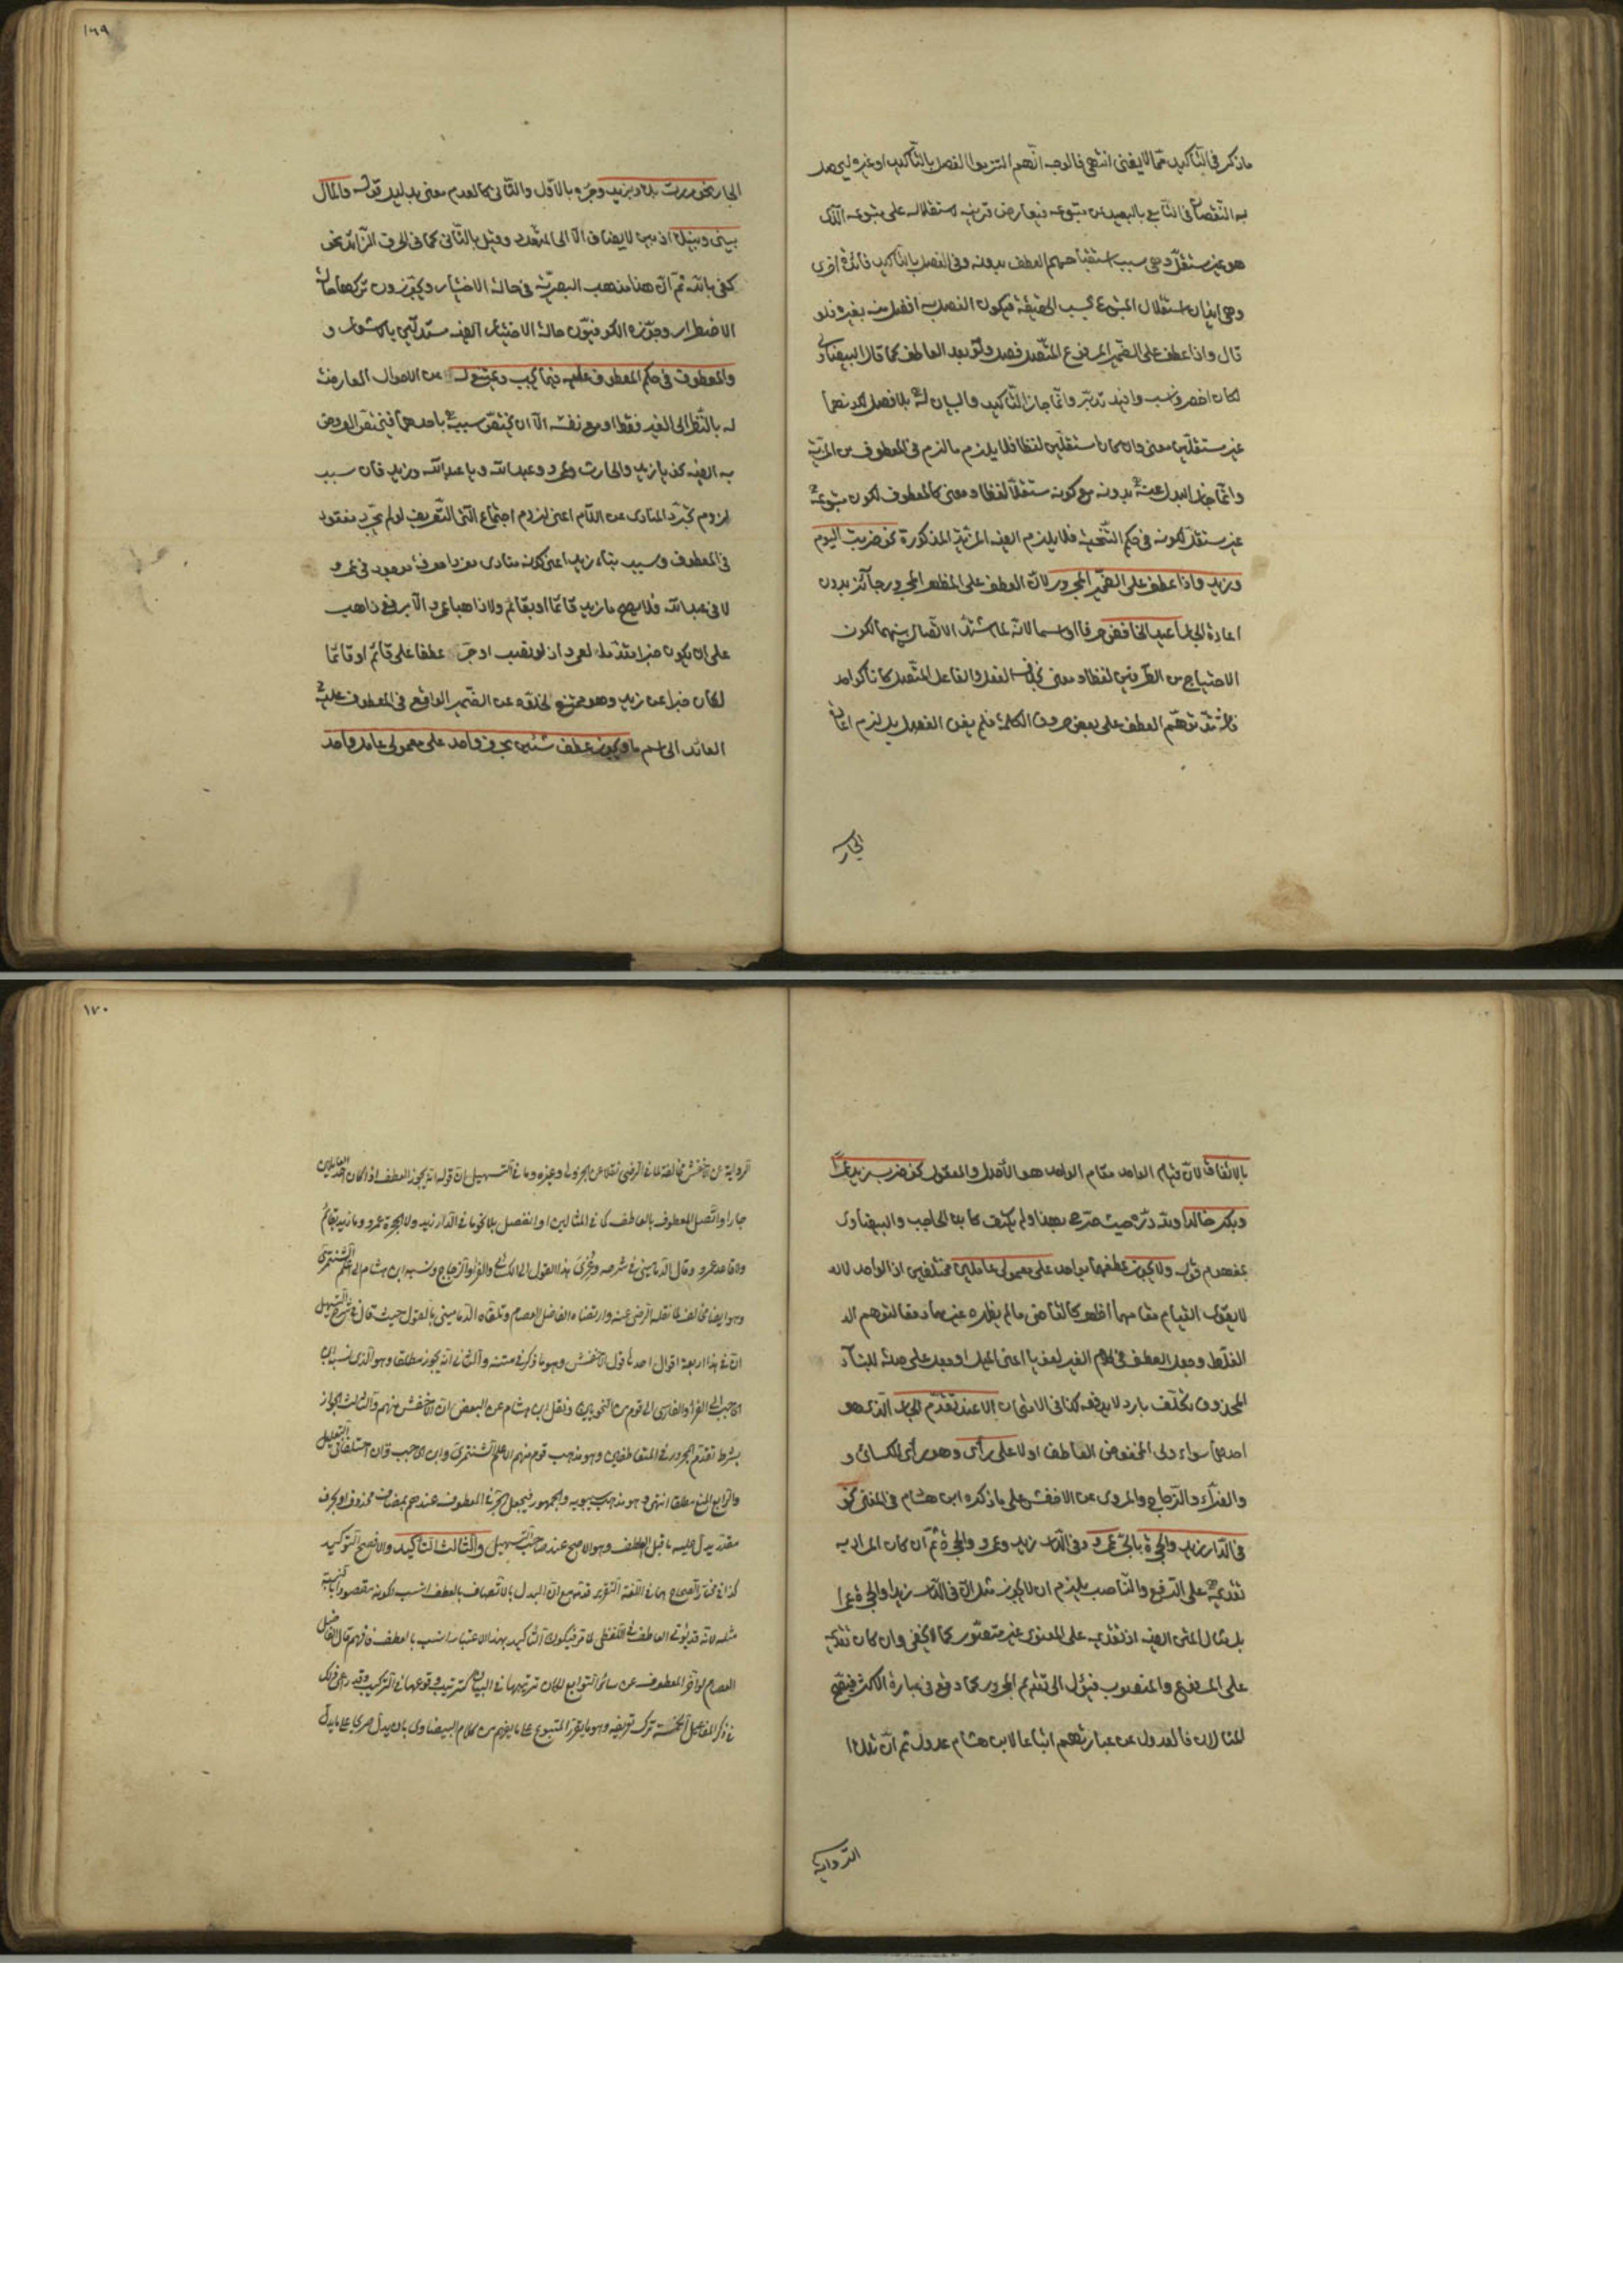 ما ذكر في التأكيد مما لا يغني انتهى فالوجه انهم التزموا الفصل بالتأكيد او غيره ليحصل
به النقصان في التابع بالبعد عن متبوعه فيعارض قرينه استقلاله على متبوعه الذى
هو غير مستقل وهى سبب استقباحهم العطف بدونه وفى الفصل بالتأكيد فائدة اخرى
وهى ايذان استقلال المتبوع بحسب الحقيقة فيكون الفصل به افضل منه بغيره فلو
قال واذا عطف على الضمير المرفوع المتصل فصل ولو بعد العاطف كما قال البيضاوى
لكان اخصر وانسب وافيد تدبر وانما جاز التأكيد والبيان له بلا فصل لكونهما
غير مستقلين معنى وان كانا مستقلين لفظا فلا يلزم ما لزم فى المعطوف من المزية
وانما جاز البدل عنه بدونه مع كونه مستقلا لفظا ومعنى كالمعطوف لكون متبوعه
غير مستقل لكونه فى حكم التنحية فلا يلزم ايضا المزية المذكورة نحو ضربت اليوم
وزيد واذا عطف على الضمير المجرور لان العطف على المظهر المجرور جائز بدون
اعادة الجار اعيد الخافض حرفا او اسما لانه لما اشتد الاتصال بينهما لكون
الاحتياج من الطرفين لفظا ومعنى بخلاف الفعل والفاعل المتصل كانا كواحد
توهم العطف على بعض حروف الكلمة فلم يغن الفصل بل لزم اعادة
الجار
١٦٩
الجار نحو مررت بك وبزيد وجره بالاول والثانى كالعدم معنى بدليل قولهم والمال
بينى وبينك اذ بين لا يضاف الا الى المتعدد وقيل بالثانى كما فى الحرف الزائد نحو
كفى بالله ثم ان هذا مذهب البصرية فى حالة الاختيار ويجوزون تركها حال
الاضطرار وجوزه الكوفيون حالة الاختيار ايضا مستدلين بالاشعار و
والمعطوف فى حكم المعطوف عليه فيما يجب ويمتنع له من الاحوال العارضة
له بالنظر الى الغير فقط او مع نفسه الا ان يختص سببه باحدهما فيختص العروض
به ايضا نحو يا زيد والحارث وعمرو وعبد الله ويا عبد الله وزيد فان سبب
لزوم تجرد المنادى عن اللام اعنى لزوم اجتماع آلتى التعريف لو لم تجرد مفقود
فى المعطوف وسبب بناء زيد اعنى كونه منادى مفردا معرفة موجود فى عمرو
لا فى عبد الله فلا يصح ما زيد قائما او بقائم ولا ذاهبا عمرو الا برفع ذاهب
على ان يكون خبرا مقدما لعمرو اذ لو نصب او جر عطفا على قائم او قائما
لكان خبرا عن زيد وهو ممتنع لخلوه عن الضمير الواقع فى المعطوف عليه
العائد الى اسم ما ويجوز عطف شيئين بحرف واحد على معمولى عامل واحد
بالاتفاق لان قيام الواحد مقام الواحد هو الاصل والمعقول نحو ضرب زيد عمرا
وبكر خالدا ولله دره حيث صرح بهذا ولم يكتف كابن الحاجب والبيضاوى
بمفهوم قوله ولا يجوز عطفهما بواحد على معمولى عاملين مختلفين اذ الواحد لانه
لا يقوى القيام مقامهما اظهر كالقاضى ما لم يظهره غيرهما دفعا لتوهم ال
الغلط وجعل العطف فى كلام الغير لغويا اعنى الميل او جعل على صلة للبناء
المحذوف تكلف بارد لا يدفعه كذا فى الامتحان الا عند تقدم الجار الذى هو
احدهما سواء ولى المخفوض العاطف او لا على رأى وهو رأى الكسائى و
والفراء والزجاج والمروى عن الاخفش على ما ذكره ابن هشام فى المغنى نحو
فى الدار زيد والحجرة بالجر عمرو وفى الدار زيد وعمرو والحجرة ثم ان كان المراد به
تقديمه على الرفع والناصب يلزم ان لا يجوز مثل ان فى الدار زيدا والحجرة عمرا
بل مثال المتن ايضا اذ تقديمه على المعنوى غير متصور كما لا يخفى وان كان تقديمه
على المرفوع والمنصوب فيؤل الى تقديم المجرور كما وقع فى عبارة الاكثر فيصح
المثالان فالعدول عن عبارتهم اتباعا لابن هشام عدول ثم ان هذا
الرواية
١٧٠
الرواية عن الاخفش مخالفة لما فى الرضى نقلا عن الجزولى وغيره وما فى التسهيل ان قوله انه يجوز العطف اذا كان احد العاملين
جارا واتصل المعطوف بالعاطف كما فى المثالين او انفصل بلا نحو ما فى الدار زيد ولا الحجرة عمرو وما زيد بقائم
ولا قاعد عمرو وقال الدمامينى فى شرحه وعزى هذا القول الى الكسائى والفراء والزجاج ونسبه ابن هشام الى اعلم الشنتمرى
وهو ايضا مخالف لما نقله الرضى عنه وارتضاه الفاضل العصام وتلقاه الدمامينى بالقبول حيث قال فى شرح التسهيل
ان فى هذا اربعة اقوال احدها قول الاخفش وهو ما ذكر فى متنه والثانى انه يجوز مطلقا وهو الذى نسبه ابن
الحاجب الى الفراء والفارسى الى قوم من النحويين ونقل ابن هشام عن البعض ان الاخفش منهم والثالث الجواز
بشرط تقدم المجرور فى المتعاطفين وهو مذهب قوم منهم الاعلم الشنتمرى وابن الحاجب وان اختلفا فى التعليل
والرابع المنع مطلقا انتهى وهو مذهب سيبويه والجمهور فيجعل الجر فى المعطوف عندهم بمضاف محذوف او بحرف
مقدر يدل عليه ما قبل العطف وهو الاصح عند صاحب التسهيل والثالث التأكيد والافصح التوكيد
كذا فى مختار الصحاح هما فى اللغة التقرير قدمه مع ان البدل بالاتصاف بالعطف انسب لكونه مقصودا بالنسبة
مثله لانه قد يؤتى العاطف فى اللفظى لما مر فيكون التأكيد بهذا الاعتبار انسب بالعطف فافهم قال الفاضل
العصام لو آخر المعطوف عن سائر التوابع لكان ترتيبها فى البيان كترتيب وقوعها فى التركيب وقد راعى ذلك
فى ذكر المفاعيل الخمسة ترك تعريفه وهو ما يقرر المتبوع على ما يفهم من كلام البيضاوى بان يدل صريحا على ما يدل